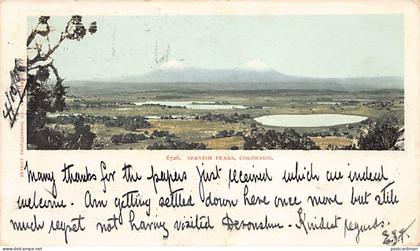 6726. SPANISH PEAKS, COLORADO.
Many thanks for the papers just received which are indeed
welcome. Am getting settled down here once more but still
much regret not having visited Devonshire. Kindest regards.